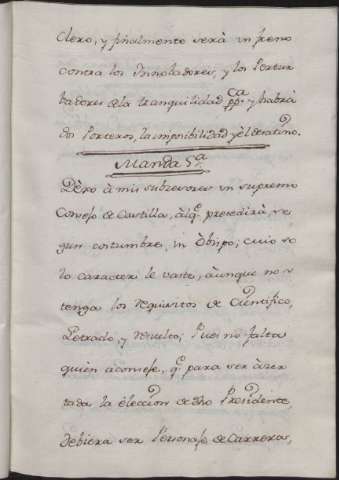 Clero, y finalmente serà un freno
contra los Innobadores, y los Pertur
badores de la tranquilidad pp.ca y habrà
dos Porteros, la imposibilidad y el destino.
Manda 5.a
Dèxo à mis subcesores un supremo
Consejo de Castilla, à el q.e precedirà, se
gun costumbre, un Òbispo, cuio so
lo caracter le vaste, àunque no
tenga los requisitos de Cientifico,
Letrado, y resuelto; Pues no falta
quien àconseje, q.e para ser àzer
tada la èleccion de dho Presidente
debiera ser Personaje de Carrera,